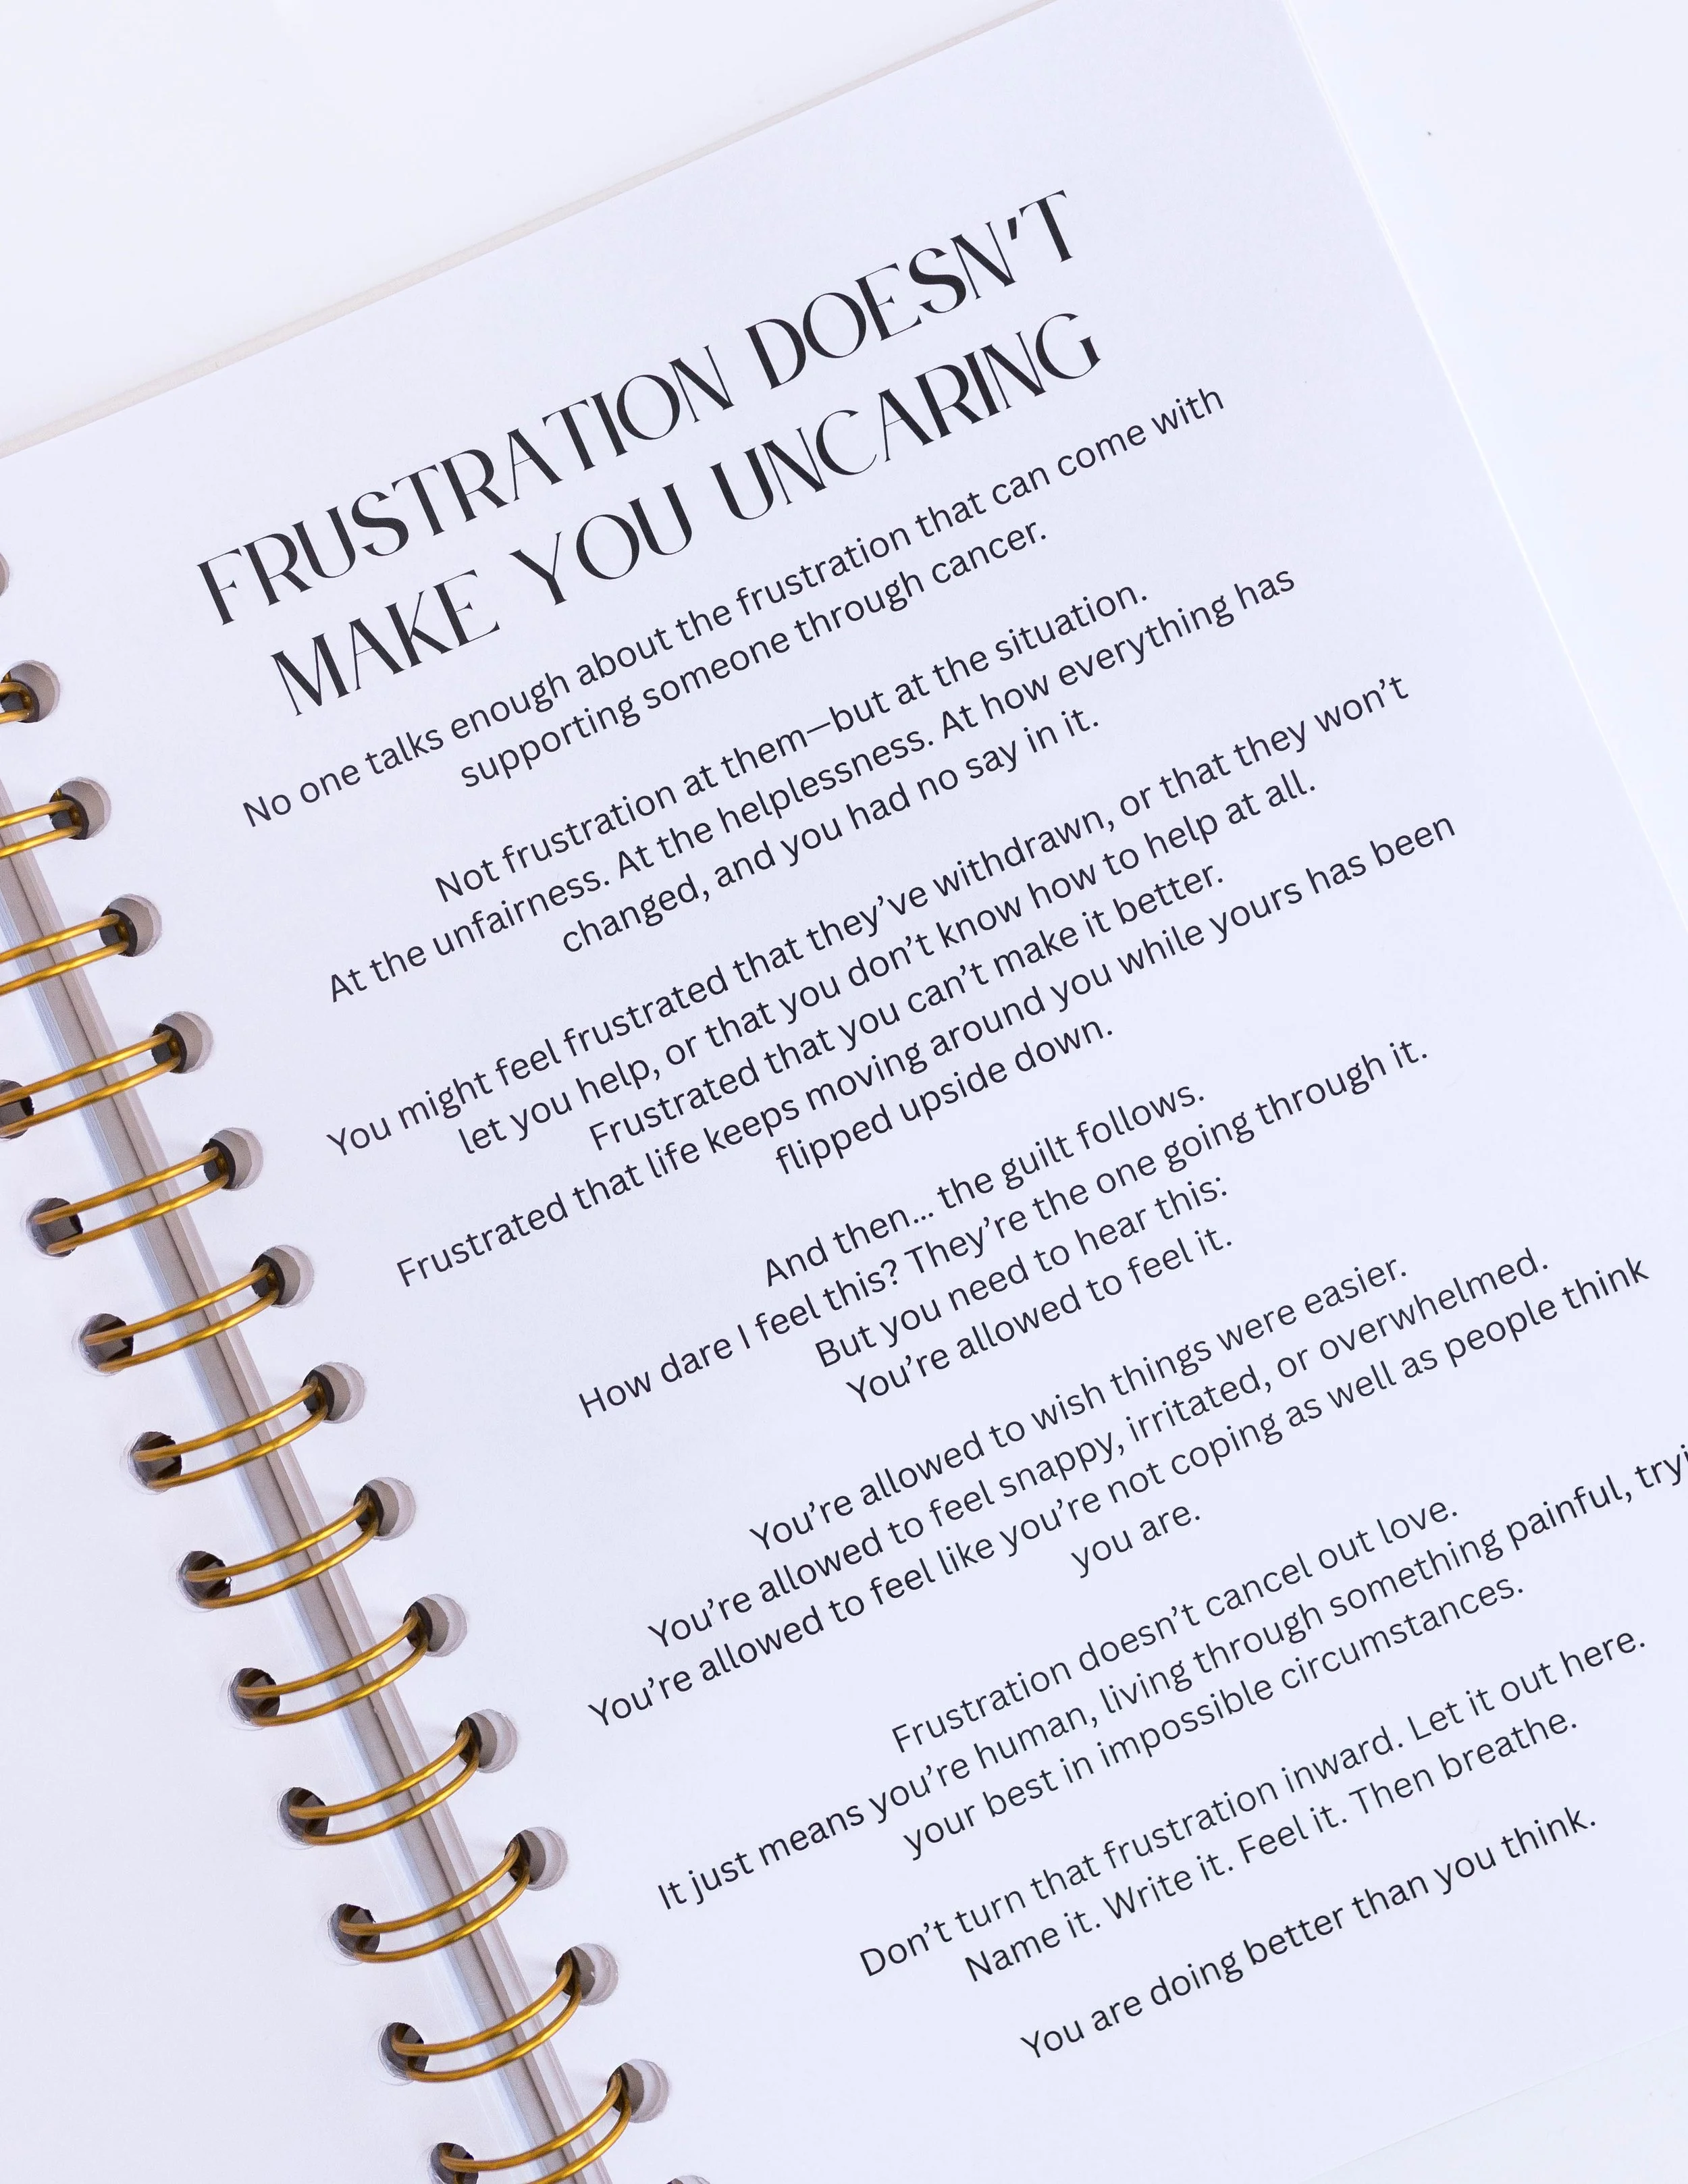 FRUSTRATION DOESN'T
MAKE YOU UNCARING
No one talks enough about the frustration that can come with
supporting someone through cancer.
Not frustration at them—but at the situation.
At the unfairness. At the helplessness. At how everything has
changed, and you had no say in it.
You might feel frustrated that they've withdrawn, or that they won't
let you help, or that you don't know how to help at all.
Frustrated that you can't make it better.
Frustrated that life keeps moving around you while yours has been
flipped upside down.
And then... the guilt follows.
How dare I feel this? They're the one going through it.
But you need to hear this:
You're allowed to feel it.
You're allowed to wish things were easier.
You're allowed to feel snappy, irritated, or overwhelmed.
You're allowed to feel like you're not coping as well as people think
you are.
Frustration doesn't cancel out love.
It just means you're human, living through something painful,
your best in impossible circumstances.
Don't turn that frustration inward. Let it out here.
Name it. Write it. Feel it. Then breathe.
You are doing better than you think.